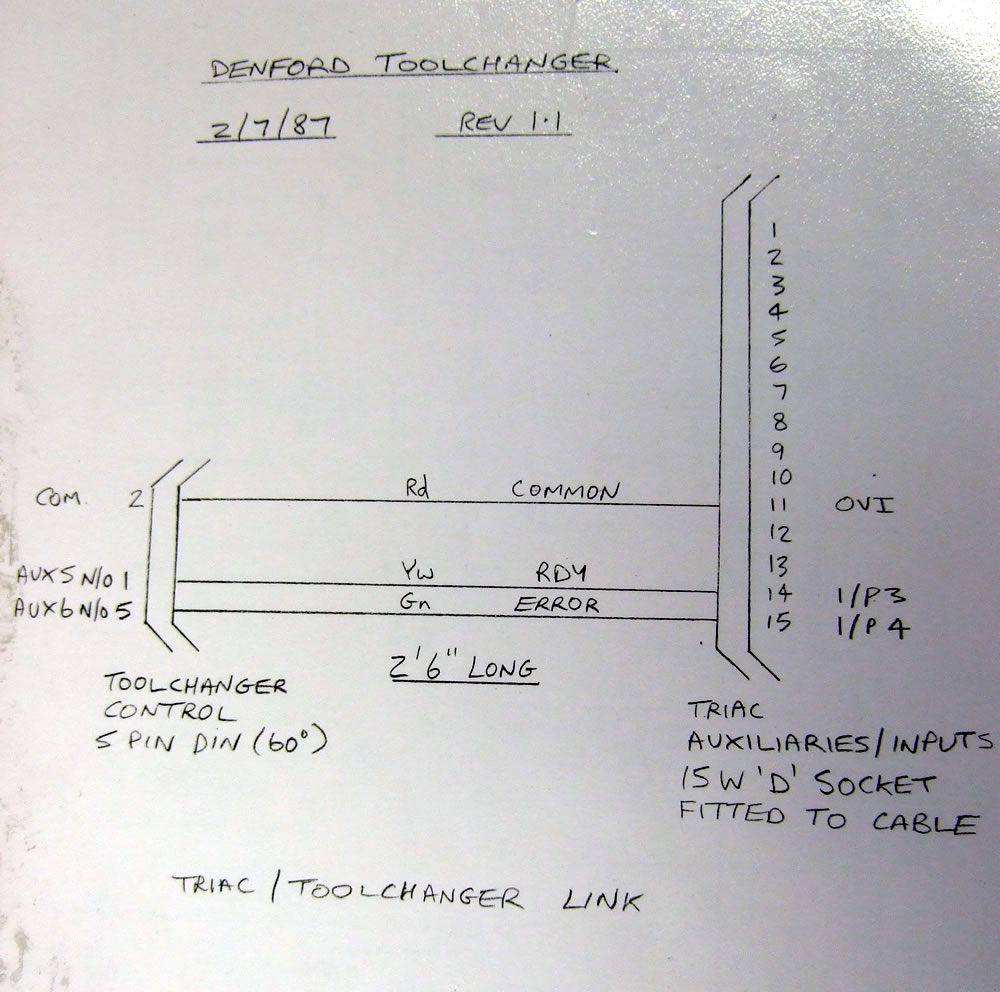 DENFORD TOOLCHANGER
2/7/87 REV 1.1
1
2
3
4
5
6
7
8
9
10
COM. 2 Rd COMMON 11 OVI
12
13
AUX5 N/O 1 Yw RDY 14 I/P3
AUX6 N/O 5 Gn ERROR 15 I/P 4
2'6" LONG
TOOLCHANGER
CONTROL
5 PIN DIN (60°)
TRIAC
AUXILIARIES/INPUTS
15W 'D' SOCKET
FITTED TO CABLE
TRIAC / TOOLCHANGER LINK